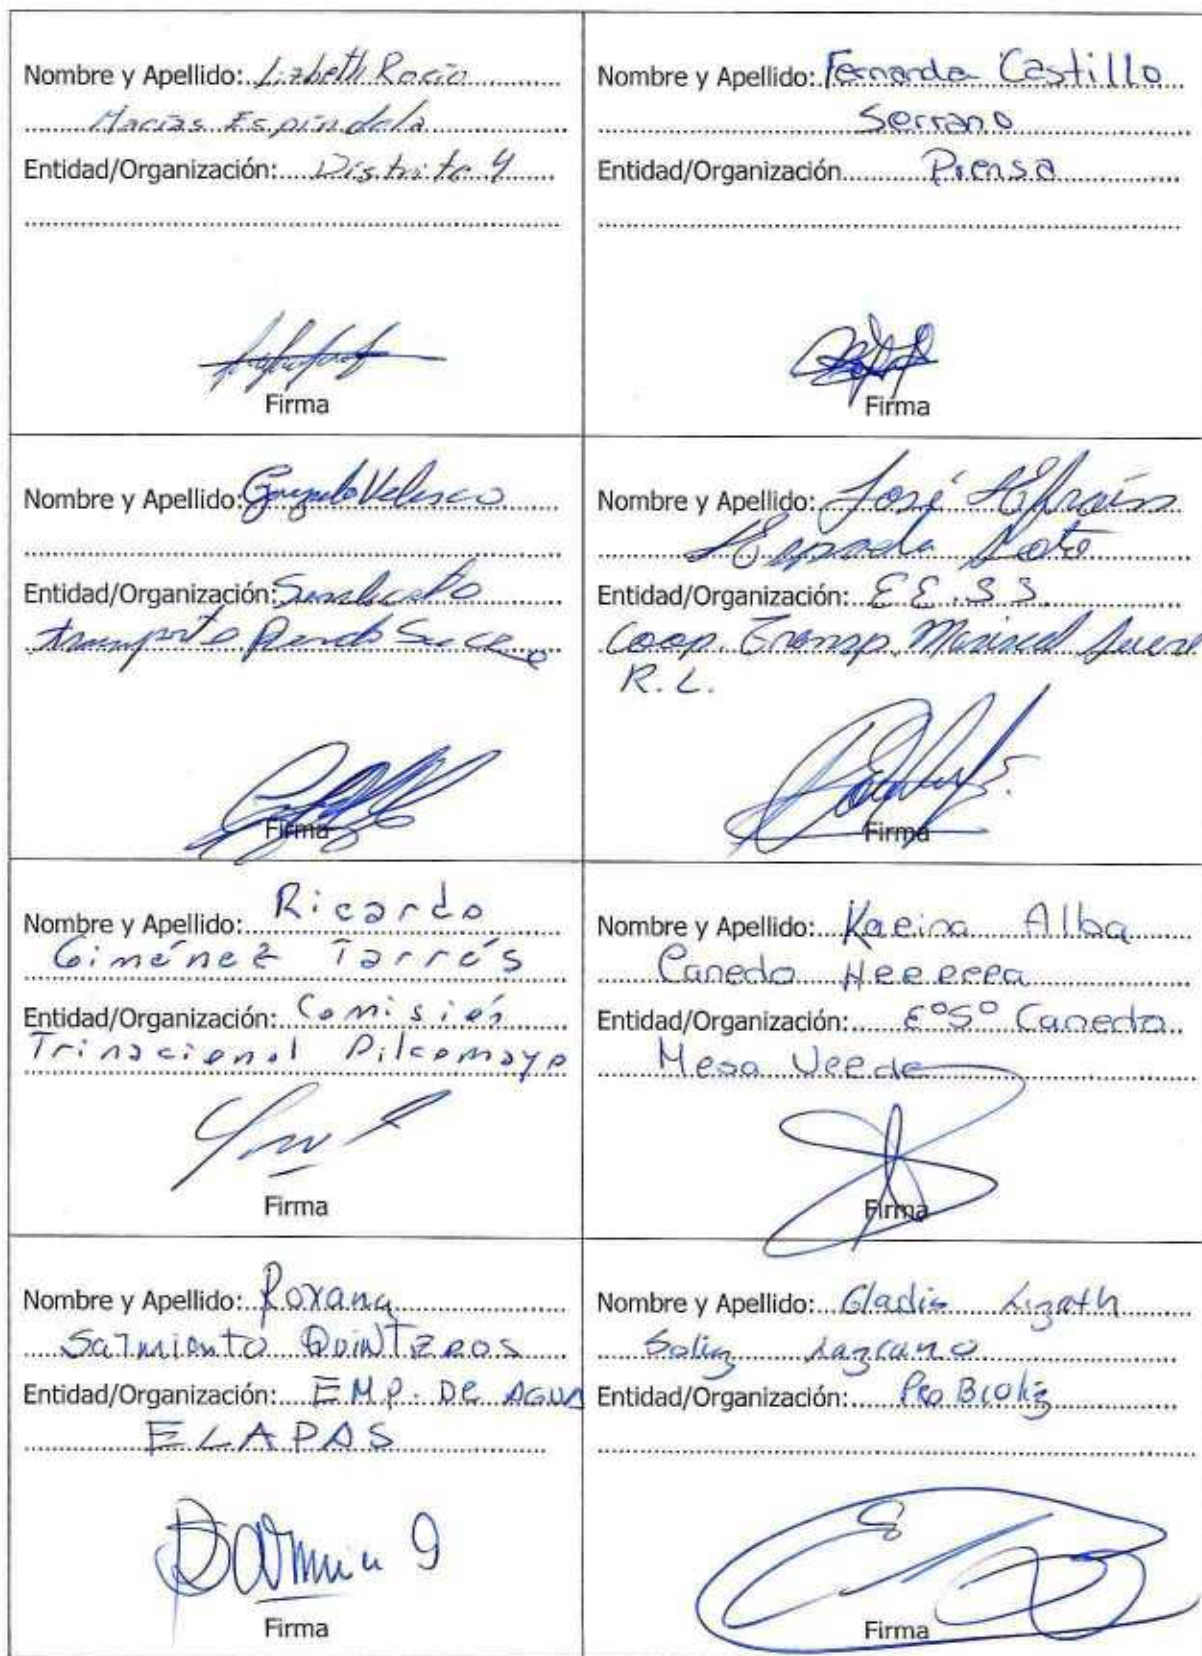 Nombre y Apellido: Lizbeth Rocío
Macías Espindola
Entidad/Organización: Distrito 4
Firma
Nombre y Apellido: Fernanda Castillo
Serrano
Entidad/Organización Prensa
Firma
Nombre y Apellido: Gonzalo Velasco
Entidad/Organización: Sindicato
transporte Sucre
Firma
Nombre y Apellido: José Efraín
Espada Soto
Entidad/Organización: EE.SS.
Coop. Transp. Mariscal Sucre
R.L.
Firma
Nombre y Apellido: Ricardo
Giménez Tarrés
Entidad/Organización: Comisión
Trinacional Pilcomayo
Firma
Nombre y Apellido: Karina Alba
Canedo Herrera
Entidad/Organización: E°S° Canedo
Mesa Verde
Firma
Nombre y Apellido: Roxana
Sarmiento Quinteros
Entidad/Organización: EMP. DE AGUA
ELAPAS
Firma
Nombre y Apellido: Gladis Lizeth
Soliz
Entidad/Organización:
Firma